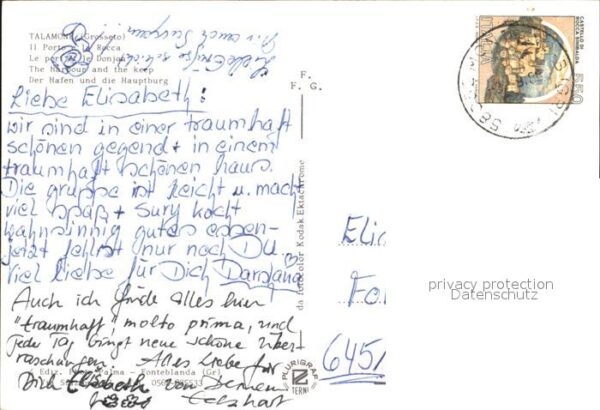 TALAMONE (Grosseto)
Il Porto e la Rocca
Le port et le Donjon
The Harbour and the keep
Der Hafen und die Hauptburg
Liebe Grüße
auch
Liebe Elisabeth:
wir sind in einer traumhaft
schönen gegend + in einem
traumhaft schönen haus.
Die gruppe ist leicht u. macht
viel spaß + Sury kocht
wahnsinnig gutes essen-
jetzt fehlst nur noch Du
viel Liebe für Dich Darsjana
Auch ich finde alles hier
"traumhaft", molto prima, und
jeder Tag bringt neue schöne Über-
raschungen. Alles Liebe für
Dich Elisabeth von Deinem
Eckhart
Ediz. Palma - Fonteblanda (Gr)
F.
F. G.
da fotocolor Kodak Ektachrome
PLURIGRAF
TERNI
CASTELLO DI
ROCCA SINIBALDA
ITALIA
550
Elis
Fo
645
privacy protection
Datenschutz